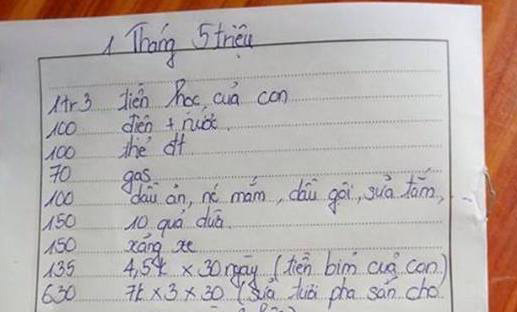 1 Tháng 5 triệu
1tr3 tiền học của con
100 điện + nước
100 thẻ đt
70 gas
100 dầu ăn, nc mắm, dầu gội, sữa tắm, ...
150 10 quả dừa
150 xăng xe
135 4,5k x 30 ngày (tiền bỉm của con)
630 7k x 3 x 30 (sữa tươi pha sẵn cho